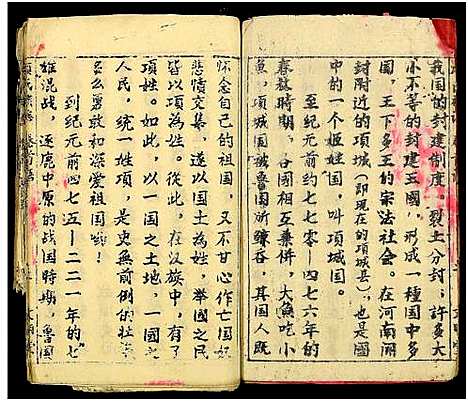 我国的封建制度。裂土分封；许多大
小不等的封建王國，形成一種国中多
国，王下多王的宗法社会。在河南開
封附近的項城（即現在的項城县），也是國
中的一个姬姓国，叫項城国。
至紀元前約七七〇—四七六年的
春秋時期，各國相互兼併，大魚吃小
魚，項城国被魯国所鯨吞，其国人既
怀念自己的祖国，又不甘心作亡国奴
悲愤交集，遂以国土為姓，举國之民
皆以項為姓。从此，在汉族中，有了
一項姓。如此，以一国之土地，一國之
人民，统一姓項，是史無前例的壮举
多么勇敢和深爱祖国哦！
到紀元前四七五—二二一年的七
雄混战，逐鹿中原的战国時期，魯国